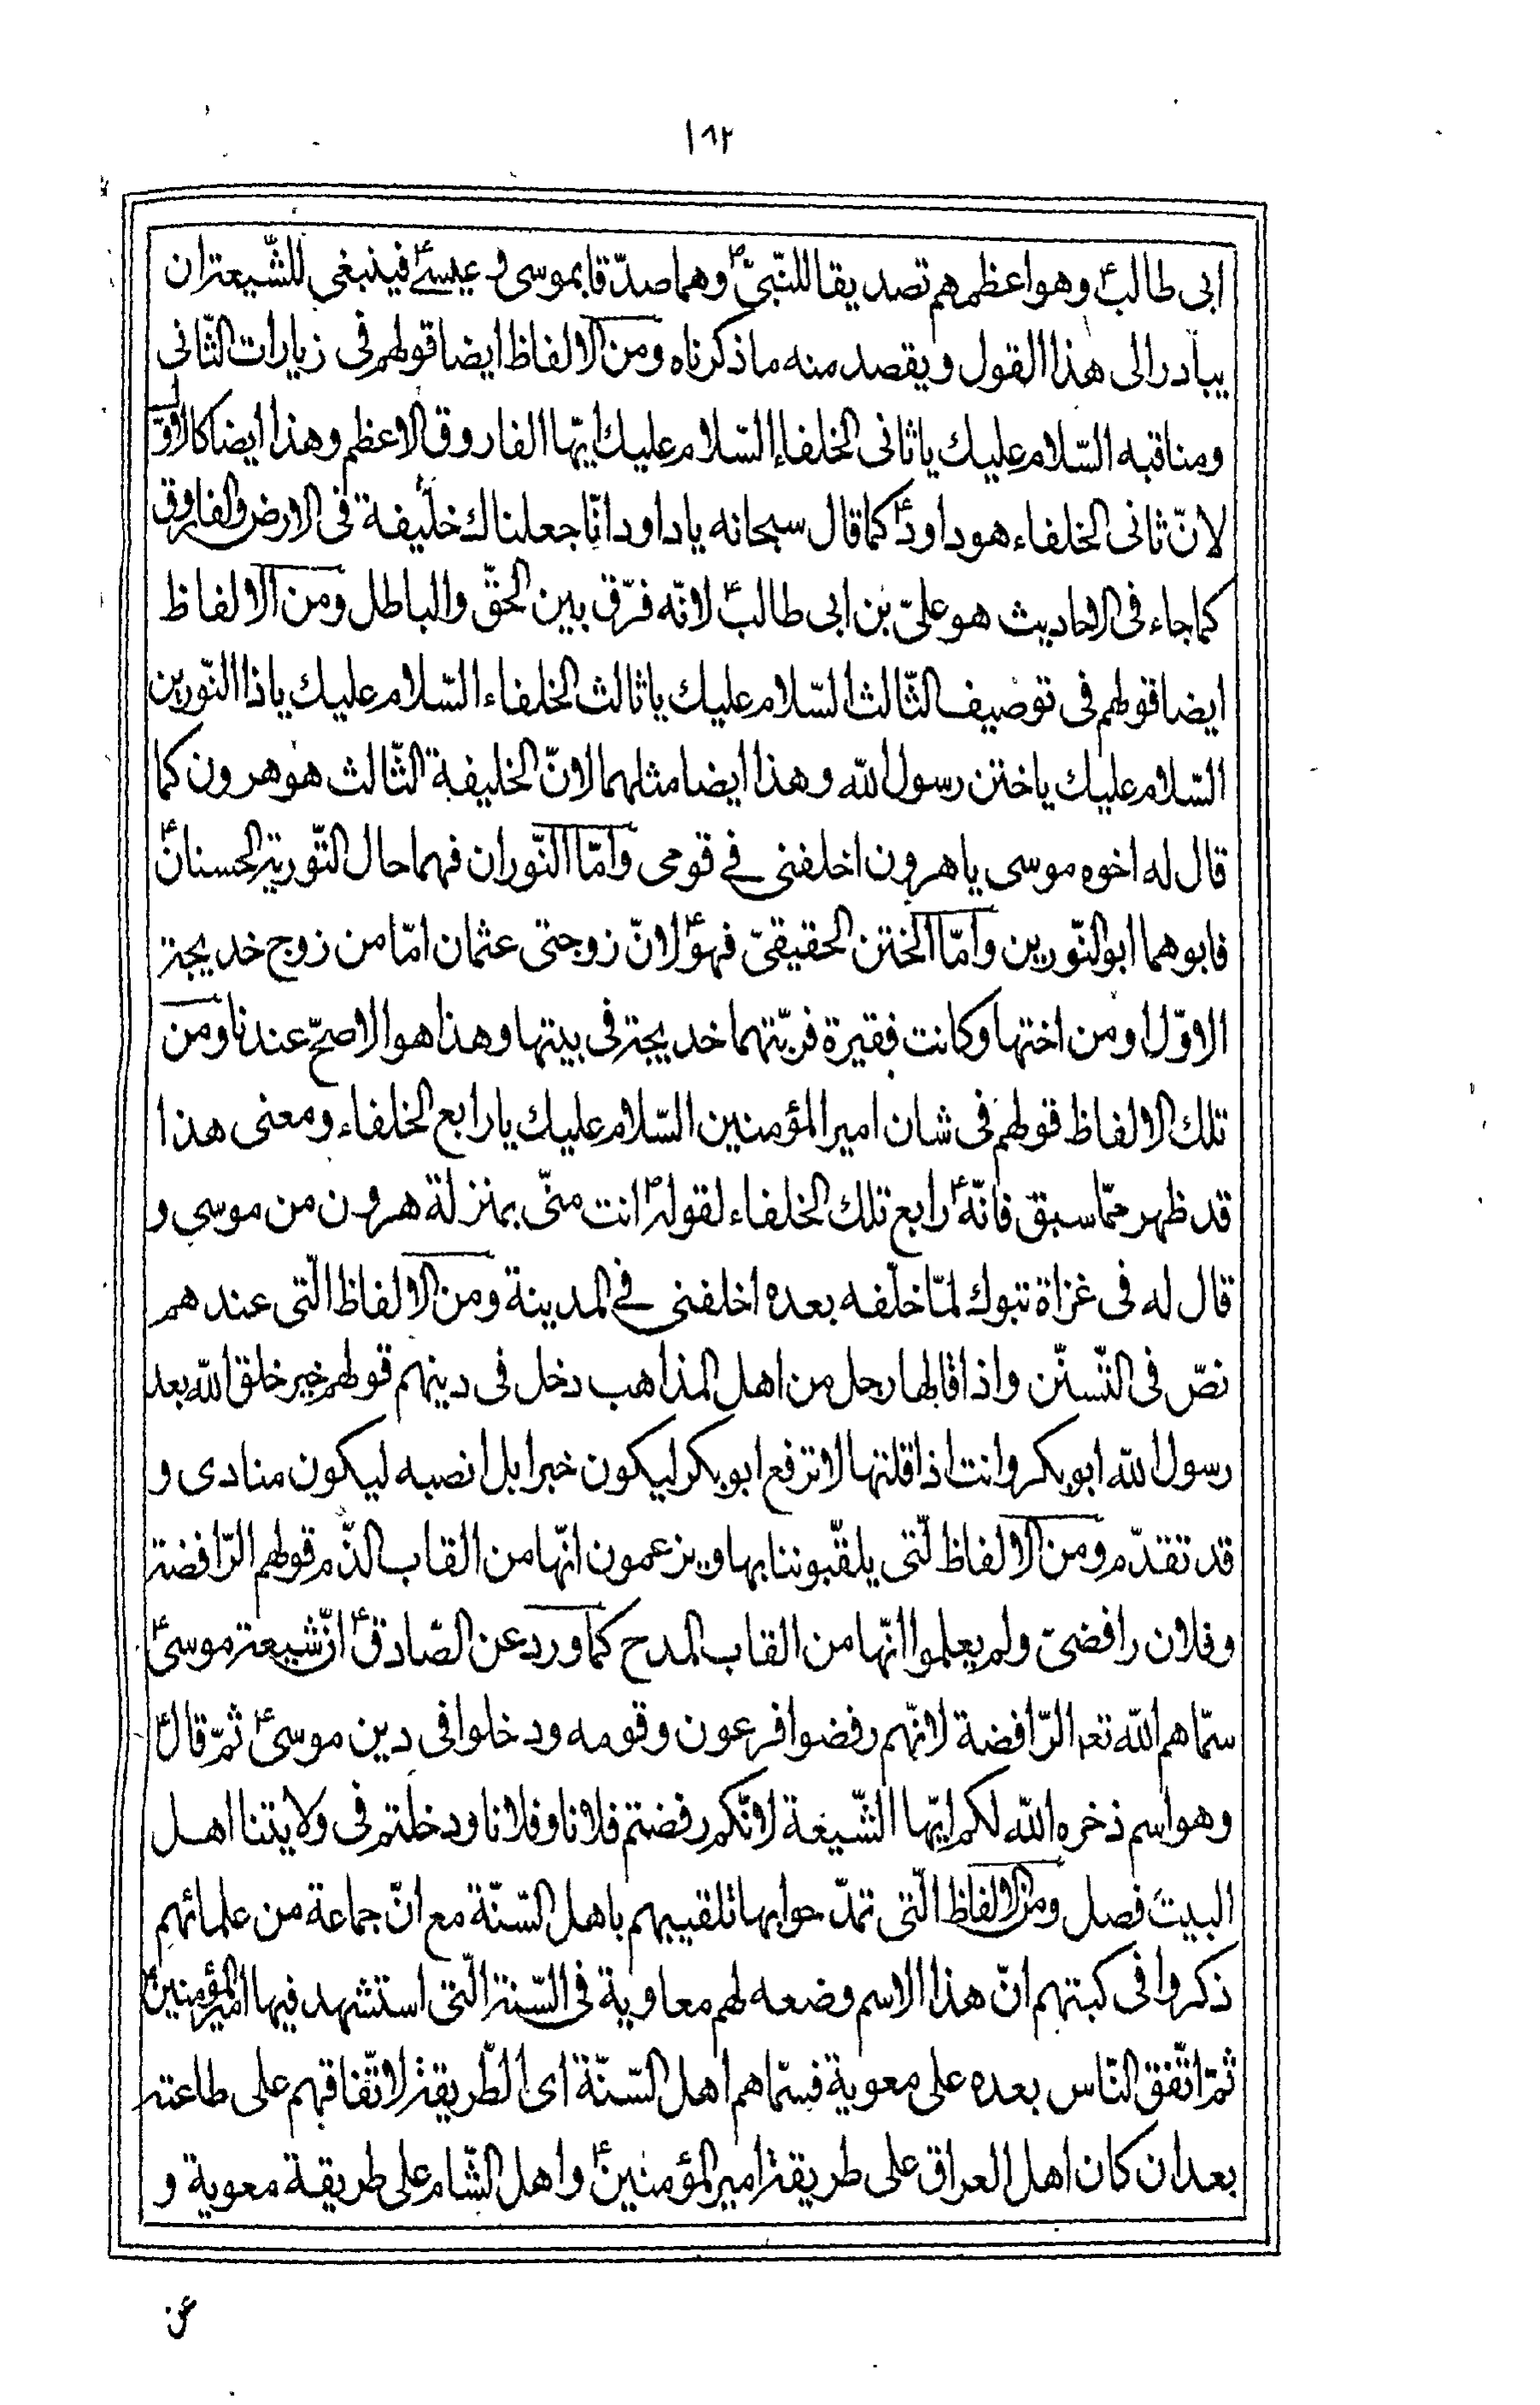 ١٨٢
ابى طالبؑ وهو اعظمهم تصديقا للنّبىّؐ وهما صدّقا بموسى و عيسىؑ فينبغى للشّيعة ان
يبادر الى هذا القول ويقصد منه ما ذكرناه ومن الالفاظ ايضا قولهم فى زيارات الثّانى
ومناقبه السّلام عليك يا ثانى الخلفاء السّلام عليك ايّها الفاروق الاعظم وهذا ايضا كالاوّل
لانّ ثانى الخلفاء هو داودؑ كما قال سبحانه يا داود انّا جعلناك خليفة فى الارض والفاروق
كما جاء فى الاحاديث هو علىّ بن ابى طالبؑ لانّه فرّق بين الحقّ والباطل ومن الالفاظ
ايضا قولهم فى توصيف الثّالث السّلام عليك يا ثالث الخلفاء السّلام عليك يا ذا النّورين
السّلام عليك يا ختن رسول الله وهذا ايضا مثلهما لانّ الخليفة الثّالث هو هرون كما
قال له اخوه موسى يا هرون اخلفنى فى قومى وامّا النّوران فهما حال التّورية الحسنانؑ
فابوهما ابو النّورين وامّا الختن الحقيقىّ فهوؑ لانّ زوجتى عثمان امّا من زوج خديجة
الاوّل او من اختها وكانت فقيرة فربّتهما خديجة فى بيتها وهذا هو الاصحّ عندنا ومن
تلك الالفاظ قولهم فى شان امير المؤمنين السّلام عليك يا رابع الخلفاء ومعنى هذا
قد ظهر ممّا سبق فانّهؑ رابع تلك الخلفاء لقولهؐ انت منّى بمنزلة هرون من موسى و
قال له فى غزاة تبوك لمّا خلّفه بعده اخلفنى فى المدينة ومن الالفاظ الّتى عندهم
نصّ فى التّسنّن واذا قالها رجل من اهل المذاهب دخل فى دينهم قولهم خير خلق الله بعد
رسول الله ابو بكر وانت اذا قلتها لا ترفع ابو بكر ليكون خبرا بل انصبه ليكون منادى و
قد تقدّم ومن الالفاظ لّتى يلقّبوننا بها ويزعمون انّها من القاب الذّم قولهم الرّافضة
وفلان رافضىّ ولم يعلموا انّها من القاب المدح كما ورد عن الصّادقؑ انّ شيعة موسىؑ
سمّاهم الله تعه الرّافضة لانّهم رفضوا فرعون وقومه ودخلوا فى دين موسىؑ ثمّ قالؑ
وهو اسم ذخره الله لكم ايّها الشّيعة لانّكم رفضتم فلانا وفلانا ودخلتم فى ولايتنا اهل
البيت فصل ومن الالفاظ الّتى تمدّحوا بها تلقيبهم باهل السّنّة مع انّ جماعة من علمائهم
ذكروا فى كبتهم انّ هذا الاسم وضعه لهم معاوية فى السّنة الّتى استشهد فيها امير المؤمنينؑ
ثمّ اتّفق النّاس بعده على معوية فسمّاهم اهل السّنّة اى الطّريقة لاتّفاقهم على طاعته
بعد ان كان اهل العراق على طريقة امير المؤمنينؑ واهل الشّام على طريقة معوية و